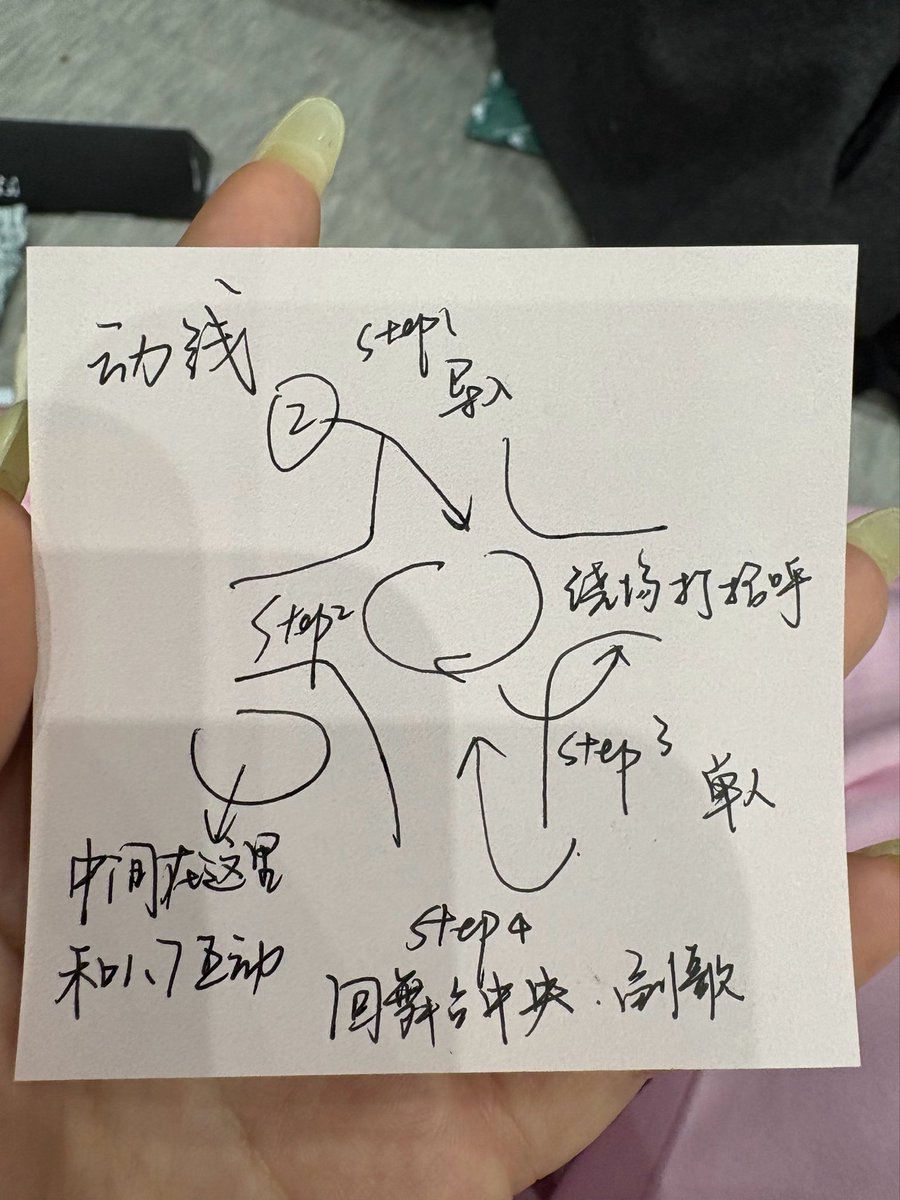 动线
step1
导入
2
绕场打招呼
step2
step3
单人
中间在这里
和1、7互动
step4
回舞台中央、副歌